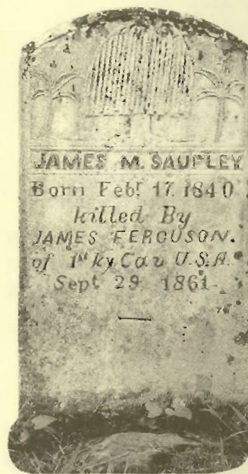 JAMES M. SAUFLEY
Born Feby. 17. 1840
killed By
JAMES FERGUSON.
of 1st Ky Cav U.S.A.
Sept 29. 1861.